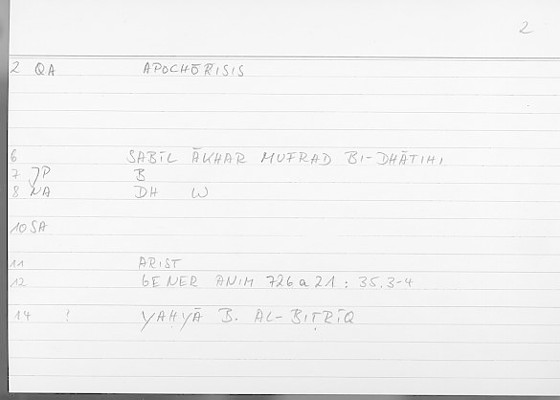 2
2 QA APOCHŌRISIS
6 SABĪL ĀKHAR MUFRAD BI-DHĀTIHI
7 JP B
8 NA DH W
10 SA
11 ARIST
12 GENER ANIM 726 a 21 : 35,3-4
14 ! YAḤYĀ B. AL-BIṬRĪQ